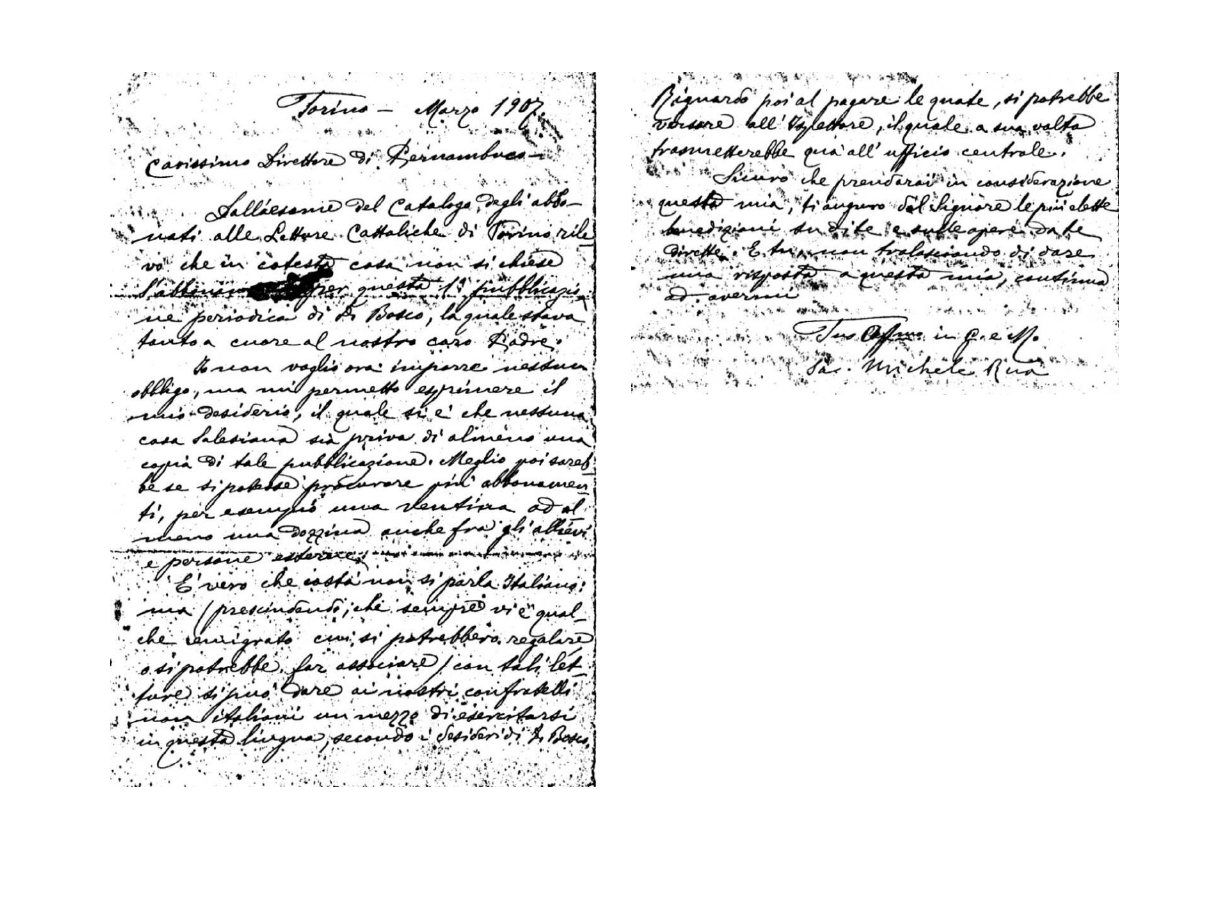 Torino – Marzo 1907
Carissimo Direttore di Pernambuco –
Dall'esame del Catalogo degli abbo-
nati alle Letture Cattoliche di Torino rile
vo che in cotesta casa non si chiese
per questa pubblicazio-
ne periodica di D. Bosco, la quale stava
tanto a cuore al nostro caro Padre.
Io non voglio ora imporre nessun
obbligo, ma mi permetto esprimere il
mio desiderio, il quale si è che nessuna
casa Salesiana sia priva di almeno una
copia di tale pubblicazione. Meglio poi sareb-
be se si potesse procurare più abbonamen
ti, per esempio una ventina od al
meno una dozzina anche fra gli allievi
e persone esterne.
E' vero che costà non si parla Italiano;
ma (prescindendo, che sempre vi è qual-
che emigrato cui si potrebbero regalare
o si potrebbe far associare) con tali let-
ture si può dare ai nostri confratelli
non italiani un mezzo di esercitarsi
in questa lingua, secondo i desideri di D. Bosco.
Riguardo poi al pagare le quote, si potrebbe
versare all'Ispettore, il quale a sua volta
trasmetterebbe qua all'ufficio centrale.
Sicuro che prenderai in considerazione
questa mia, ti auguro dal Signore le più elette
benedizioni su di te e sulle opere da te
dirette. E tu, non tralasciando di dare
una risposta a questa mia, continua
ad avermi
Tuo in G. e M.
Sac. Michele Rua